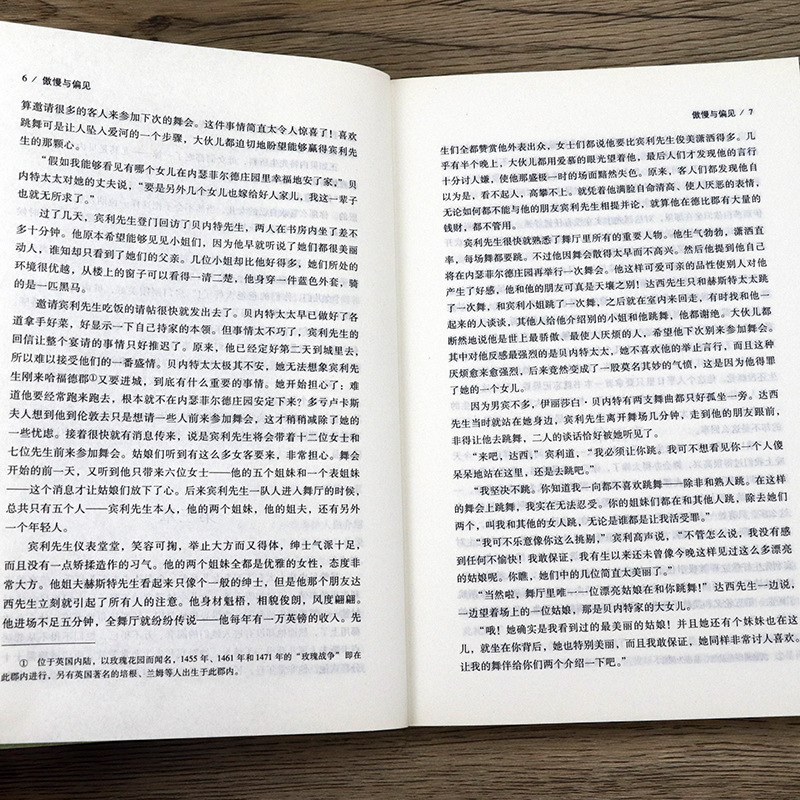 6 / 傲慢与偏见
算邀请很多的客人来参加下次的舞会。这件事情简直太令人惊喜了！喜欢
跳舞可是让人坠入爱河的一个步骤，大伙儿都迫切地盼望能够赢得宾利先
生的那颗心。
“假如我能够看见有哪个女儿在内瑟菲尔德庄园里幸福地安了家，”贝
内特太太对她的丈夫说，“要是另外几个女儿也嫁给好人家儿，我这一辈子
也就无所求了。”
过了几天，宾利先生登门回访了贝内特先生，两人在书房内坐了差不
多十分钟。他原本希望能够见见小姐们，因为他早就听说了她们都很美丽
动人，谁知却只看到了她们的父亲。几位小姐却比他好得多，她们所处的
环境很优越，从楼上的窗子可以看得一清二楚，他身穿一件蓝色外套，骑
的是一匹黑马。
邀请宾利先生吃饭的请帖很快就发出去了。贝内特太太早已做好了各
道拿手好菜，好显示一下自己持家的本领。但事情太不巧了，宾利先生的
回信让整个宴请的事情只好推迟了。原来，他已经定好第二天到城里去，
所以难以接受他们的一番盛情。贝内特太太极其不安，她无法想象宾利先
生刚来哈福德郡①又要进城，到底有什么重要的事情。她开始担心了：难
道他要经常跑来跑去，根本就不在内瑟菲尔德庄园安定下来？多亏卢卡斯
夫人想到他到伦敦去只是想请一些人前来参加舞会，这才稍稍减除了她的
一些忧虑。接着很快就有消息传来，说是宾利先生将会带着十二位女士和
七位先生前来参加舞会。姑娘们听到有这么多女客要来，非常担心。舞会
开始的前一天，又听到他只带来六位女士——他的五个姐妹和一个表姐妹
——这个消息才让姑娘们放下了心。后来宾利先生一队人进入舞厅的时候，
总共只有五个人——宾利先生本人，他的两个姐妹，他的姐夫，还有另外
一个年轻人。
宾利先生仪表堂堂，笑容可掬，举止大方而又得体，绅士气派十足，
而且没有一点矫揉造作的习气。他的两个姐妹全都是优雅的女性，态度非
常大方。他姐夫赫斯特先生看起来只像个一般的绅士，但是他那个朋友达
西先生立刻就引起了所有人的注意。他身材魁梧，相貌俊朗，风度翩翩。
他进场不足五分钟，全舞厅就纷纷传说——他每年有一万英镑的收入。先
① 位于英国内陆，以玫瑰花园而闻名，1455 年、1461 年和 1471 年的“玫瑰战争”即在
此郡内进行，另有英国著名的培根、兰姆等人出生于此郡内。
傲慢与偏见 / 7
生们全都赞赏他外表出众，女士们都说他要比宾利先生俊美潇洒得多。几
乎有半个晚上，大伙儿都用爱慕的眼光望着他，最后人们才发现他的言行
十分讨人嫌，使他那盛极一时的场面黯然失色。原来，客人们都发现他自
以为是，看不起人，高攀不上。就凭着他满脸自命清高、使人厌恶的表情，
无论如何都不能与他的朋友宾利先生相提并论，就算他在德比郡有大量的
钱财，都不管用。
宾利先生很快就熟悉了舞厅里所有的重要人物。他生气勃勃，潇洒直
率，每场舞都要跳。不过他因舞会散得太早而不高兴。然后他提到他自己
将在内瑟菲尔德庄园再举行一次舞会。他这样可爱可亲的品性使别人对他
产生了好感，他和他的朋友可真是天壤之别！达西先生只和赫斯特太太跳
了一次舞，和宾利小姐跳了一次舞，之后就在室内来回走，有时找和他一
起来的人谈谈，其他人给他介绍别的小姐和他跳舞，他都谢绝。大伙儿都
断然地说他是世上最骄傲、最使人厌烦的人，希望他下次别来参加舞会。
其中对他反感最强烈的是贝内特太太，她不喜欢他的举止言行，而且这种
厌烦愈来愈强烈，后来竟然变成了一股莫名其妙的气愤，这是因为他得罪
了她的一个女儿。
因为男宾不多，伊丽莎白·贝内特有两支舞曲都只好孤坐一旁。达西
先生当时就站在她身边，宾利先生离开舞场几分钟，走到他的朋友跟前，
非得让他去跳舞，二人的谈话恰好被她听见了。
“来吧，达西，”宾利道，“我必须让你跳。我可不想看见你一个人傻
呆呆地站在这里，还是去跳吧。”
“我坚决不跳。你知道我一向都不喜欢跳舞——除非和熟人跳。在这样
的舞会上跳舞，我实在无法忍受。你的姐妹们都在和其他人跳，除去她们
两个，叫我和其他的女人跳，无论是谁都是让我活受罪。”
“我可不乐意像你这么挑剔，”宾利高声说，“不管怎么说，我没有感
到任何不愉快！我敢保证，我有生以来还未曾像今晚这样见过这么多漂亮
的姑娘呢。你瞧，她们中的几位简直太美丽了。”
“当然啦，舞厅里唯一一位漂亮姑娘在和你跳舞！”达西先生一边说，
一边望着场上的一位姑娘，那是贝内特家的大女儿。
“哦！她确实是我看到过的最美丽的姑娘！并且她还有个妹妹也在这
儿，就坐在你背后，她也特别美丽，而且我敢保证，她同样非常讨人喜欢。
让我的舞伴给你们两个介绍一下吧。”